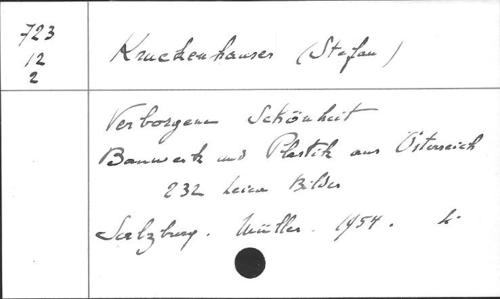 723
12
2
Kruckenhauser (Stefan)
Verborgene Schönheit
Bauwerk und Plastik aus Österreich
232 Leica Bilder
Salzburg. Müller. 1954.